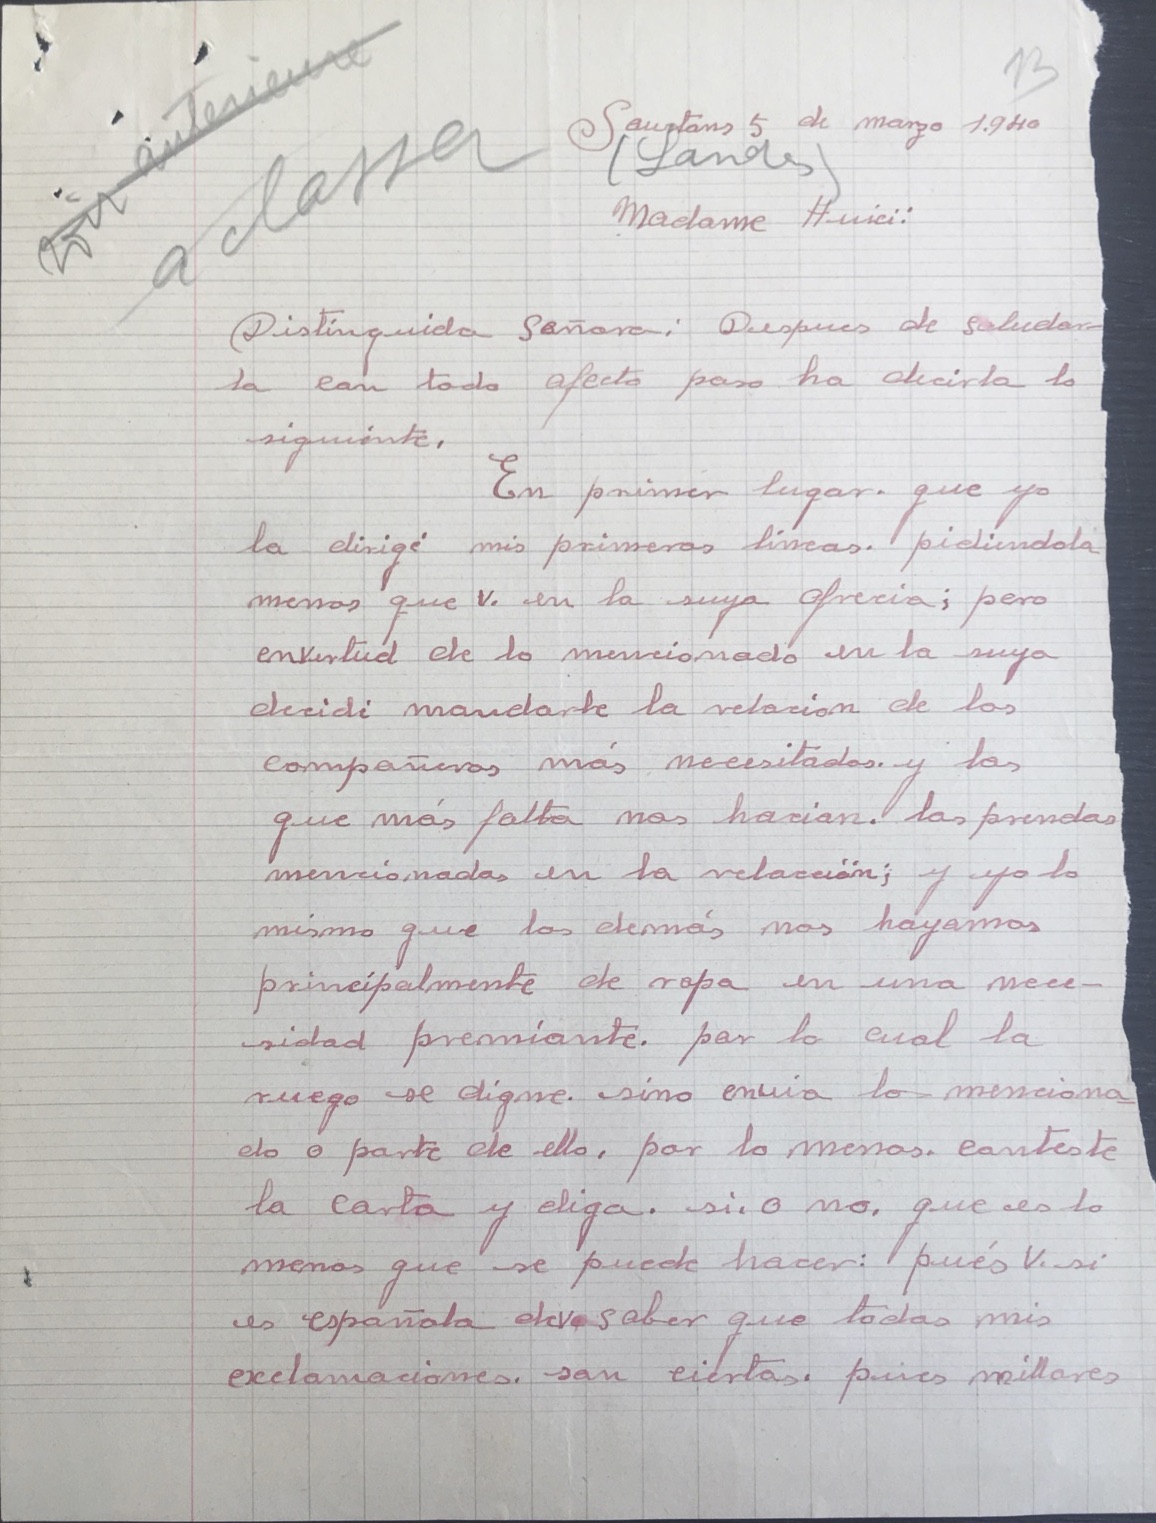 13
a classer
Soustons 5 de marzo 1.940
(Landes)
Madame Huici:
Distinguida Señora: Despues de saludar-
la con todo afecto paso ha decirla lo
siguiente.
En primer lugar. que yo
la dirigé mis primeras líneas. pidiendola
menos que V. en la suya ofrecia; pero
envertud de lo mencionado en la suya
decidi mandarle la relacion de los
compañeros más necesitados. y las
que más falta nos hacian. las prendas
mencionadas en la relacción; y yo lo
mismo que los demás nos hayamos
principalmente de ropa en una nece-
sidad premiante. por lo cual la
ruego se digne. sino envia lo menciona-
do o parte de ello, por lo menos. conteste
la carta y diga. si. o no, que es lo
menos que se puede hacer: pués V. si
es española deve saber que todas mis
exclamaciones. son ciertas. pues millares